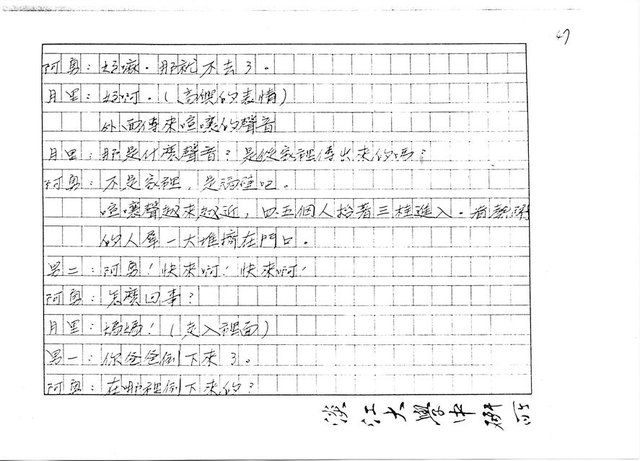 47
阿勇：好嘛。那就不去了。
月里：好啊。(高興的表情)
外面傳來喧嚷的聲音
月里：那是什麼聲音？是從家裡傳出來的嗎？
阿勇：不是家裡，是隔壁吧。
喧嚷聲越來越近，四五個人抬著三桂進入。看熱鬧
的人羣一大堆擠在門口。
男二：阿勇！快來啊！快來啊！
阿勇：怎麼回事？
月里：媽媽！(走入裡面)
男一：你爸爸倒下來了。
阿勇：在哪裡倒下來的？
淡江大學中研所